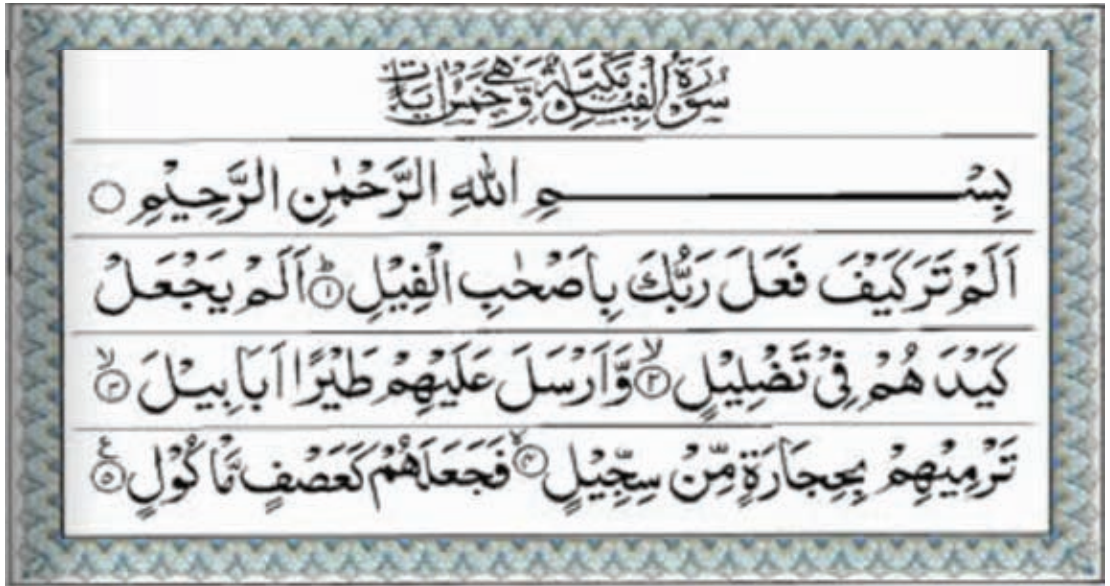 سُوْرَةُ الْفِيْلِ مَكِّيَّةٌ وَّهِيَ خَمْسُ اٰيَاتٍ
بِسْمِ اللهِ الرَّحْمٰنِ الرَّحِيْمِ ○
اَلَمْ تَرَكَيْفَ فَعَلَ رَبُّكَ بِاَصْحٰبِ الْفِيْلِ ؕ﴿۱﴾ اَلَمْ يَجْعَلْ
كَيْدَ هُمْ فِيْ تَضْلِيْلٍ ۙ﴿۲﴾ وَّاَرْسَلَ عَلَيْهِمْ طَيْرًا اَبَابِيْلَ ۙ﴿۳﴾
تَرْمِيْهِمْ بِحِجَارَةٍ مِّنْ سِجِّيْلٍ ۙ﴿۴﴾ فَجَعَلَهُمْ كَعَصْفٍ مَّاْكُوْلٍ ﴿۵﴾ ع